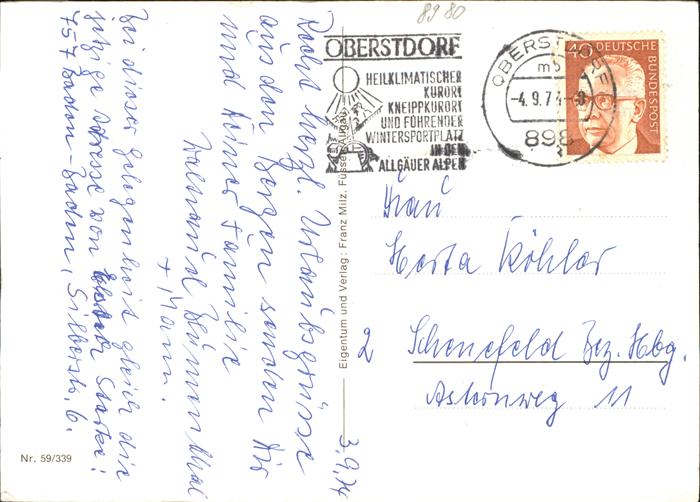 8980
OBERSTDORF
HEILKLIMATISCHER
KURORT
KNEIPPKURORT
UND FÜHRENDER
WINTERSPORTPLATZ
IN DEN
ALLGÄUER ALPEN
OBERSTDORF
-4.9.74-
898
40 DEUTSCHE
BUNDESPOST
3.9.74
Recht herzl. Urlaubsgrüsse
aus den Bergen senden Dir
und Deiner Familie
Waltraud
+ Mann.
Bei dieser Gelegenheit gleich die
jetzige Adresse von
757 Baden-Baden, Silberstr. 6.
Eigentum und Verlag: Franz Milz, Füssen Allgäu
Frau
Herta Köhler
2 Schenefeld Bez. Hbg.
Asternweg 11
Nr. 59/339